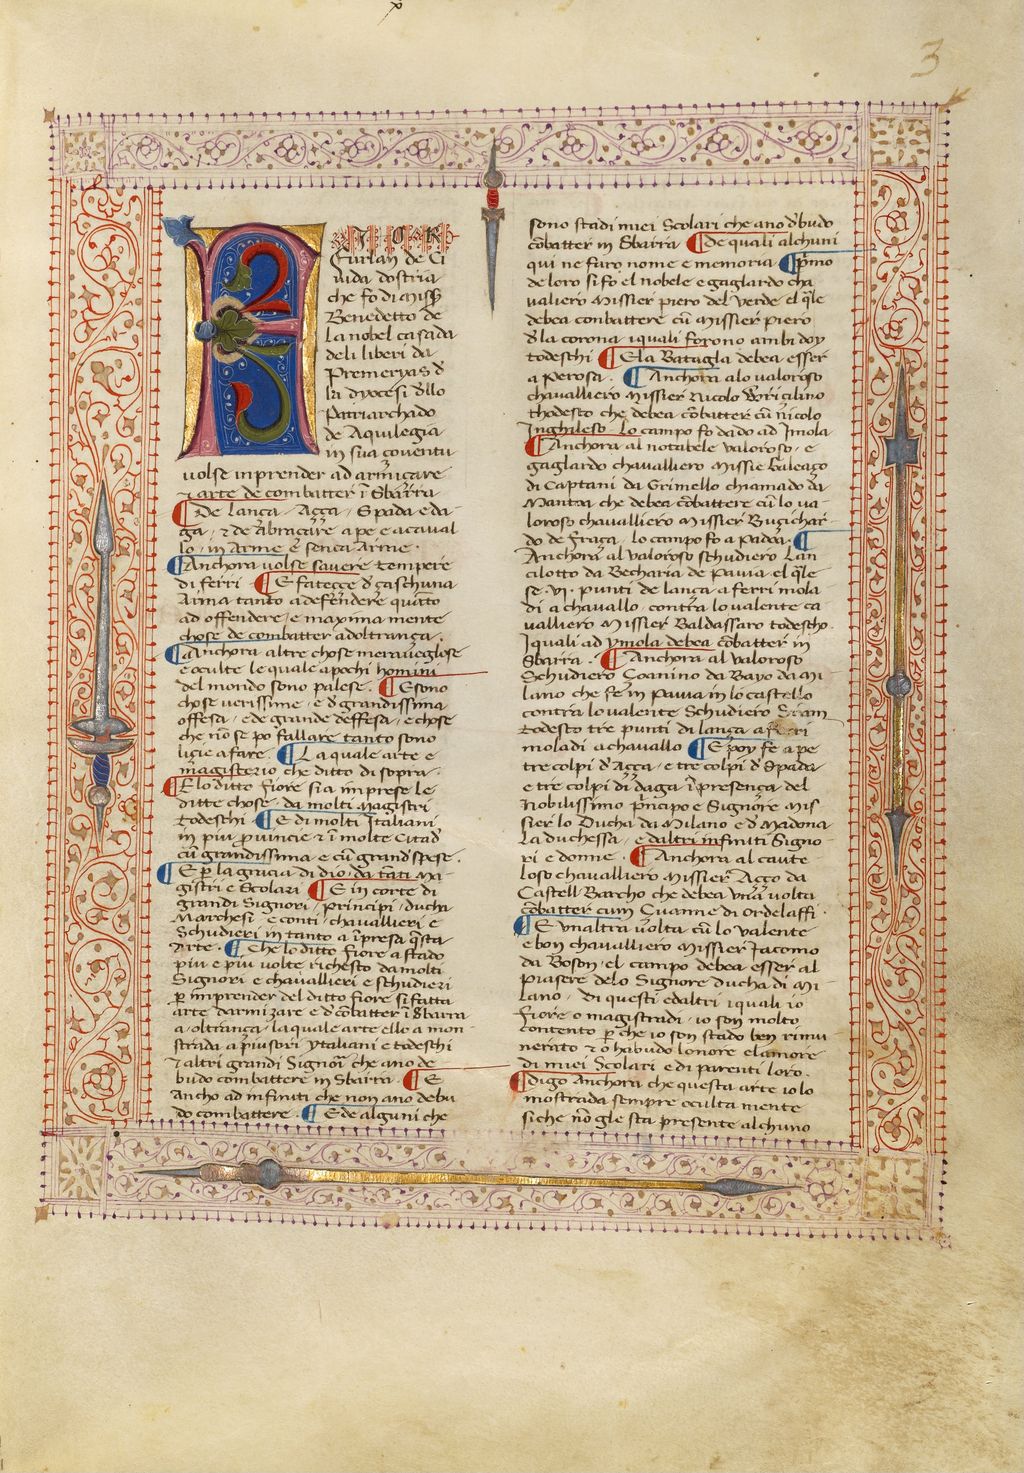 3
FIOR
Furlan de Ci
uida dostria
che fo di miss̄
Benedetto de
la nobel casada
deli liberi da
Premeryas d̄
la dyocesi d̄llo
Patriarchado
de Aquilegia
in sua coventu
volse inprender ad armiçare
⁊ arte de combatter ī Sbarra
¶ De Lança / Açça / Spada e da-
ga / ⁊ de abraçar̄ a pe e acaual
lo / in arme e sença Arme ·
¶ Anchora volse sauere tempere
di ferri · ¶ E fateçce d̄ çaschuna
Arma tanto a defendere quāto
ad offendere / e maxima mente
chose de combatter ad oltrança ·
¶ Anchora altre chose merauegliose
e oculte le quale a pochi homini
del mondo sono palese · ¶ E sono
chose verissime / e d̄ grandissima
offesa / e de grande deffesa / e chose
che nō se po fallare tanto sono
ligie a fare · ¶ La quale arte e
magisterio che ditto di sopra ·
¶ E lo ditto fiore sia imprese le
ditte chose · da molti Magistri
todeschi · ¶ E di molti Italiani
in piu prouincie ⁊ ī molte Citad̄
cū grandissima e cū grand̄ spese ·
¶ E ꝑ la gracia di dio / da tati Ma-
gistri e Scolari ¶ E in corte di
grandi Signori / Principi / ducha
Marchesi e conti / chauallieri e
Schudieri in tanto a īpresa q̄sta
Arte · ¶ Che lo ditto Fiore a stado
piu e piu volte richesto da molti
Signori e chauallieri e schudieri
ꝑ imprender del ditto fiore si fatta
arte d'armizare e d̄ cōbatter ī Sbarra
a oltrança / la quale arte ello a mon-
strada a piusori ytaliani e todeschi
⁊ altri grandi Signori che ano de
budo combattere in Sbarra · ¶ E
ancho ad infiniti che non ano debu
do combattere · ¶ E de alguni che
sono stadi miei Scolari che ano d̄budo
cōbatter in Sbarra ¶ de quali alchuni
qui ne faro nome e memoria · ¶ p̄mo
de loro si fo el nobele e gagliardo cha
ualiero Missier piero del verde el q̄le
debea conbattere cū Missier piero
d̄la corona iquali forono ambi doy
todeschi · ¶ E la Batagla debea esser
a Perosa · ¶ Anchora a lo ualoroso
chaualliero Missier Nicolo Voriçilino
thodesco che debea cōbatter cū nicolo
Inghileso · Lo campo fo dado ad Imola
¶ Anchora al notabele valoroso / e
gagliardo chaualliero Missier Galeaço
di Captani da Grimello chiamado da
Mantoa che debea cōbattere cū lo va-
loroso chaualliero Missier Buçichar-
do de fraça / lo campo fo a Padoa · ¶
Anchora al valoroso schudiero Lan
cilotto da Becharia de Pauia el q̄le
fe ·VI· punti de lança a ferri mola
di a chauallo contra lo valente ca
ualliero Missier Baldassaro todescho ·
I quali ad ymola debea cōbatter in
Sbarra · ¶ Anchora al valoroso
Schudiero Çoanino da Bayo da Mi-
lano che fe in Pauia in lo castello
contra lo valente Schudiero Sram
todesco tre punti di lança a ferri
moladi a chauallo ¶ E poy fe a pe
tre colpi d̄ Açça / e tre colpi d̄ Spada
e tre colpi d̄ daga ī presença del
Nobilissimo principo e Signore Mis
sier lo Ducha da Milano e d̄ Madona
La duchessa / e d'altri infiniti Signo-
ri e donne · ¶ Anchora al caute
loso chaualliero Missier Açço da
Castell Barcho che debea una volta
cōbatter cum Çuanne di Ordelaffi ·
¶ E vnaltra volta cū lo valente
e bon chaualliero Missier Jacomo
da Boson / el campo debea esser al
piasere delo Signore ducha di Mi-
lano / di questi e d'altri iquali io
Fiore o magistradi / io son molto
contento ꝑ che io son stado ben rimu
nerato ⁊ o habudo l'onore e l'amore
di miei Scolari e di parenti loro ·
¶ digo anchora che questa arte io lo
mostrada sempre oculta mente
siche nō gle sta presente alchuno